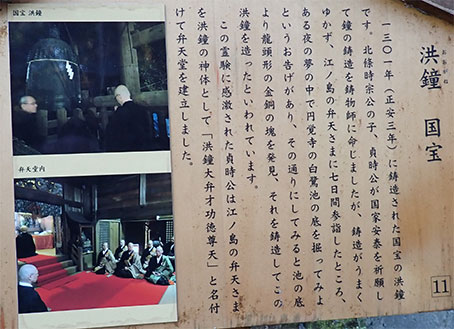 洪鐘 国宝
おおがね
一三〇一年(正安三年)に鋳造された国宝の洪鐘
です。北條時宗公の子、貞時公が国家安泰を祈願し
て鐘の鋳造を鋳物師に命じましたが、鋳造がうまく
ゆかず、江ノ島の弁天さまに七日間参詣したところ、
ある夜の夢の中で円覚寺の白鷺池の底を掘ってみよ
というお告げがあり、その通りにしてみると池の底
より龍頭形の金銅の塊を発見、それを鋳造してこの
洪鐘を造ったといわれています。
この霊験に感激された貞時公は江ノ島の弁天さま
を洪鐘の神体として「洪鐘大弁才功徳尊天」と名付
けて弁天堂を建立しました。
11
国宝 洪鐘
弁天堂内